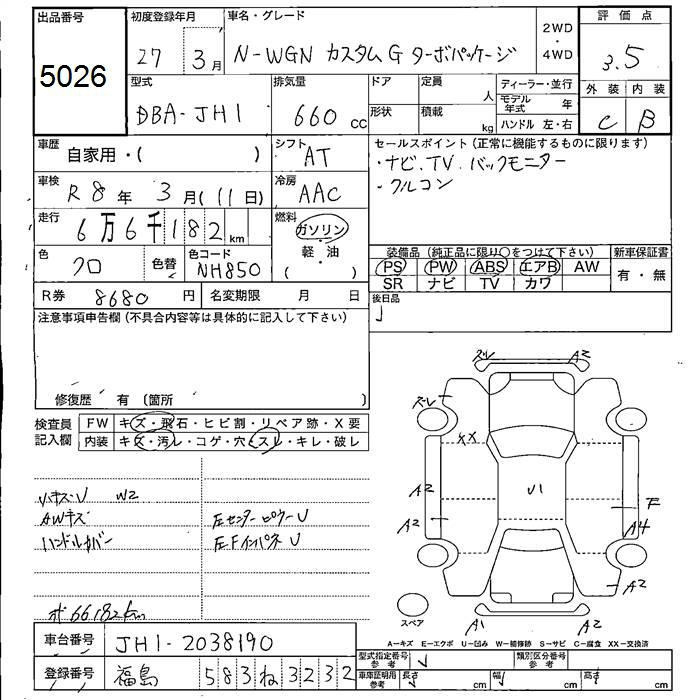 出品番号
5026
初度登録年月
27 3月
車名・グレード
N-WGN カスタム G ターボパッケージ
2WD
・
4WD
評価点
3.5
外装 内装
C B
型式
DBA-JH1
排気量
660 cc
ドア
定員
人
ディーラー・並行
モデル年式 年
形状
積載
kg
ハンドル 左・右
車歴
自家用・( )
シフト
AT
セールスポイント(正常に機能するものに限ります)
・ナビ.TV.バックモニター
・クルコン
車検
R 8年 3月(11日)
冷房
AAC
走行
6万6千182km
燃料
ガソリン
・
軽・油
( )
色
クロ
色替
色コード
NH850
装備品(純正品に限り○をつけて下さい)
新車保証書
PS PW ABS エアB AW
SR ナビ TV カワ
有・無
R券 8680円
名変期限 月 日
後日品
注意事項申告欄(不具合内容等は具体的に記入して下さい)
修復歴 有〔箇所 〕
検査員
記入欄
FW キズ・飛石・ヒビ割・リペア跡・X要
内装 キズ・汚レ・コゲ・穴・スレ・キレ・破レ
小キズ・U W2
AWキズ
ハンドルカバー
左センターピラーU
左FインパネU
ズレ A2
ズレ
XX
A2
A2
U1
F
A4
A2
A1 A2
スペア
A-キズ E-エクボ U-凹み W-補修跡 S-サビ C-腐食 XX-交換済
ボ 66182km
車台番号
JH1-2038190
登録番号
福島 583 ね 3232
型式指定番号
参考
類別区分番号
参考
車庫証明用
参考
長さ cm
幅 cm
高さ cm